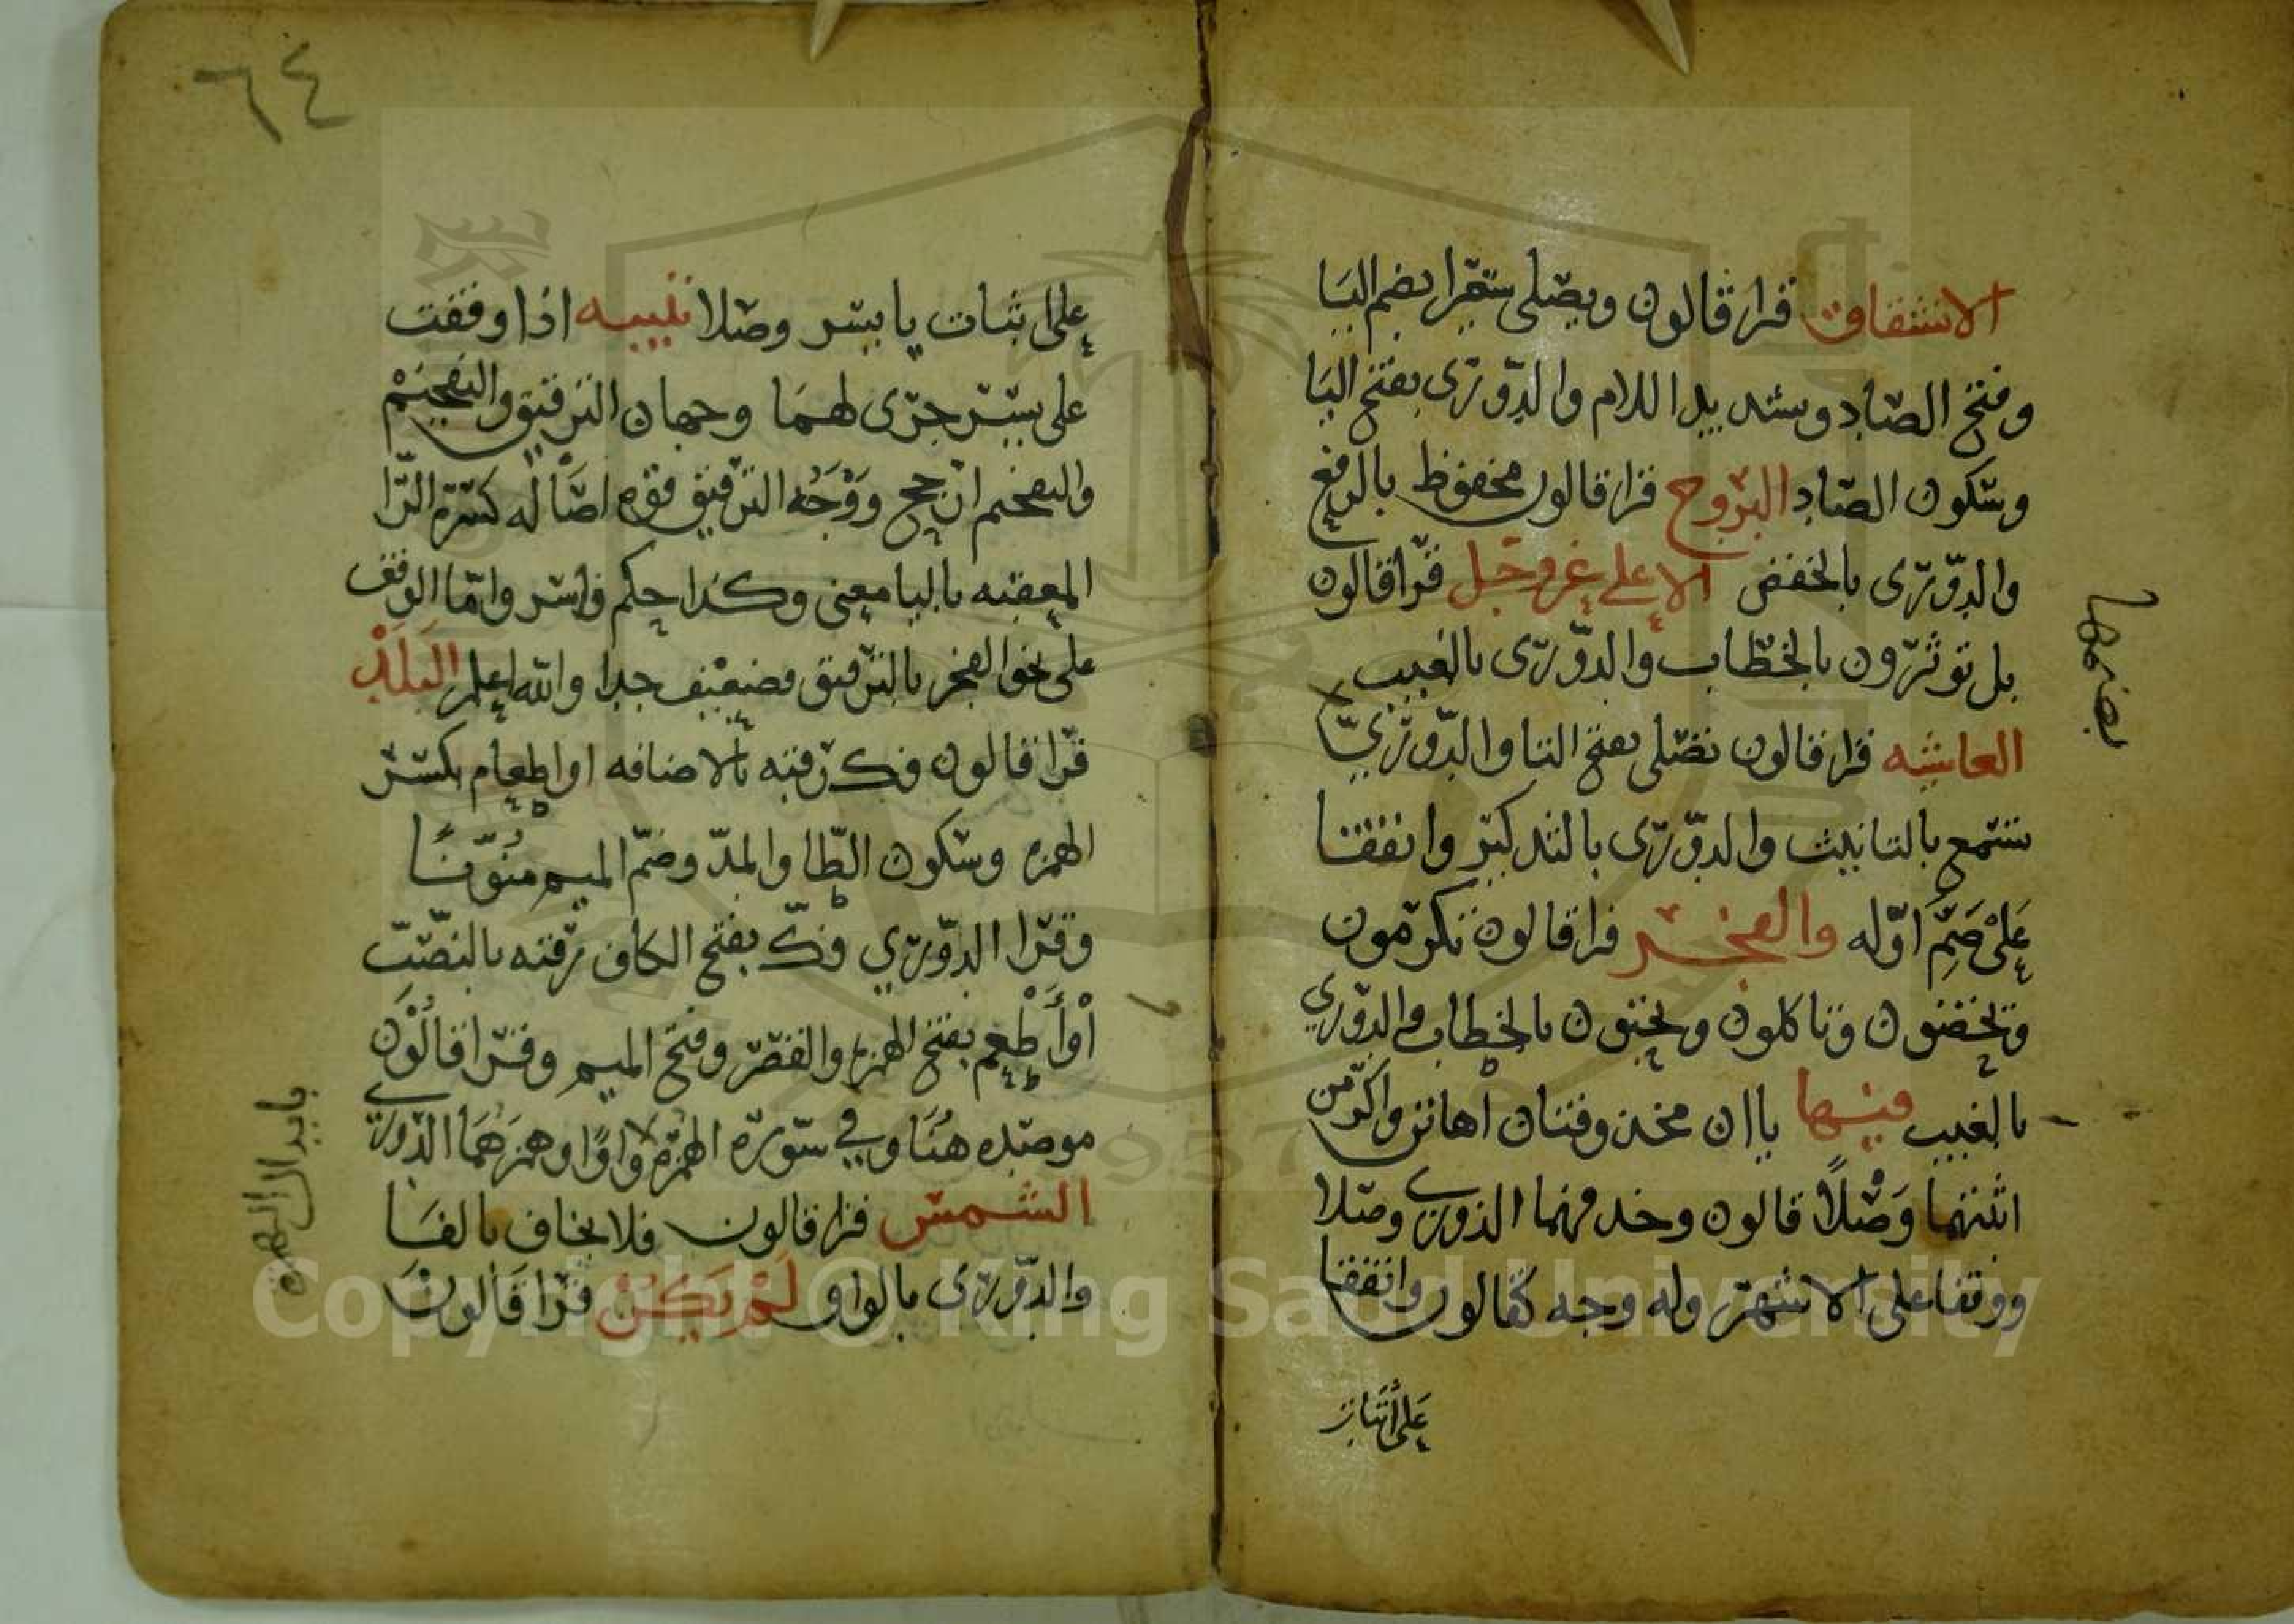 الانشقاق قرا قالون ويصلى سعيرا بضم اليا
وفتح الصاد وتشديد اللام والدوري بفتح اليا
وسكون الصاد البروج قرا قالون محفوظ بالرفع
والدوري بالخفض الاعلى عز وجل قرا قالون
بل توثرون بالخطاب والدوري بالغيب
الغاشيه قرا قالون تصلى بفتح التا والدوري
بضمها
تسمع بالتانيث والدوري بالتذكير واتفقا
على ضم اوله والفجر قرا قالون تكرمون
وتحضون وتاكلون وتحبون بالخطاب والدوري
بالغيب فيها ياان محذوفتان اهانن واكرمن
اثبتهما وصلا قالون وحذفهما الدوري وصلا
ووقفا على الاشهر وله وجه كقالون واتفقا
على اثبات
٦٤
على اثبات يا يسر وصلا تنبيه اذا وقفت
على يسر جرى لهما وجهان الترقيق والتفخيم
والتفخيم ارجح ووجه الترقيق قوه اصاله كسرة الرا
المعقبه باليا معنى وكذا حكم فاسر واما الوقف
على نحو الفجر بالترقيق فضعيف جدا والله اعلم البلد
قرا قالون فك رقبه بالاضافه او اطعام بكسر
الهمزه وسكون الطا والمد وضم الميم منونا
وقرا الدوري فك بفتح الكاف رقبه بالنصب
او أطعم بفتح الهمزة والقصر وفتح الميم وقرا قالون
موصده هنا وفي سورة الهمزة واوا وهمزهما الدوري
بابدال الهمزة
الشمس قرا قالون فلا يخاف بالفا
والدوري بالواو لم يكن قرا قالون
Copyright © King Saud University
1957